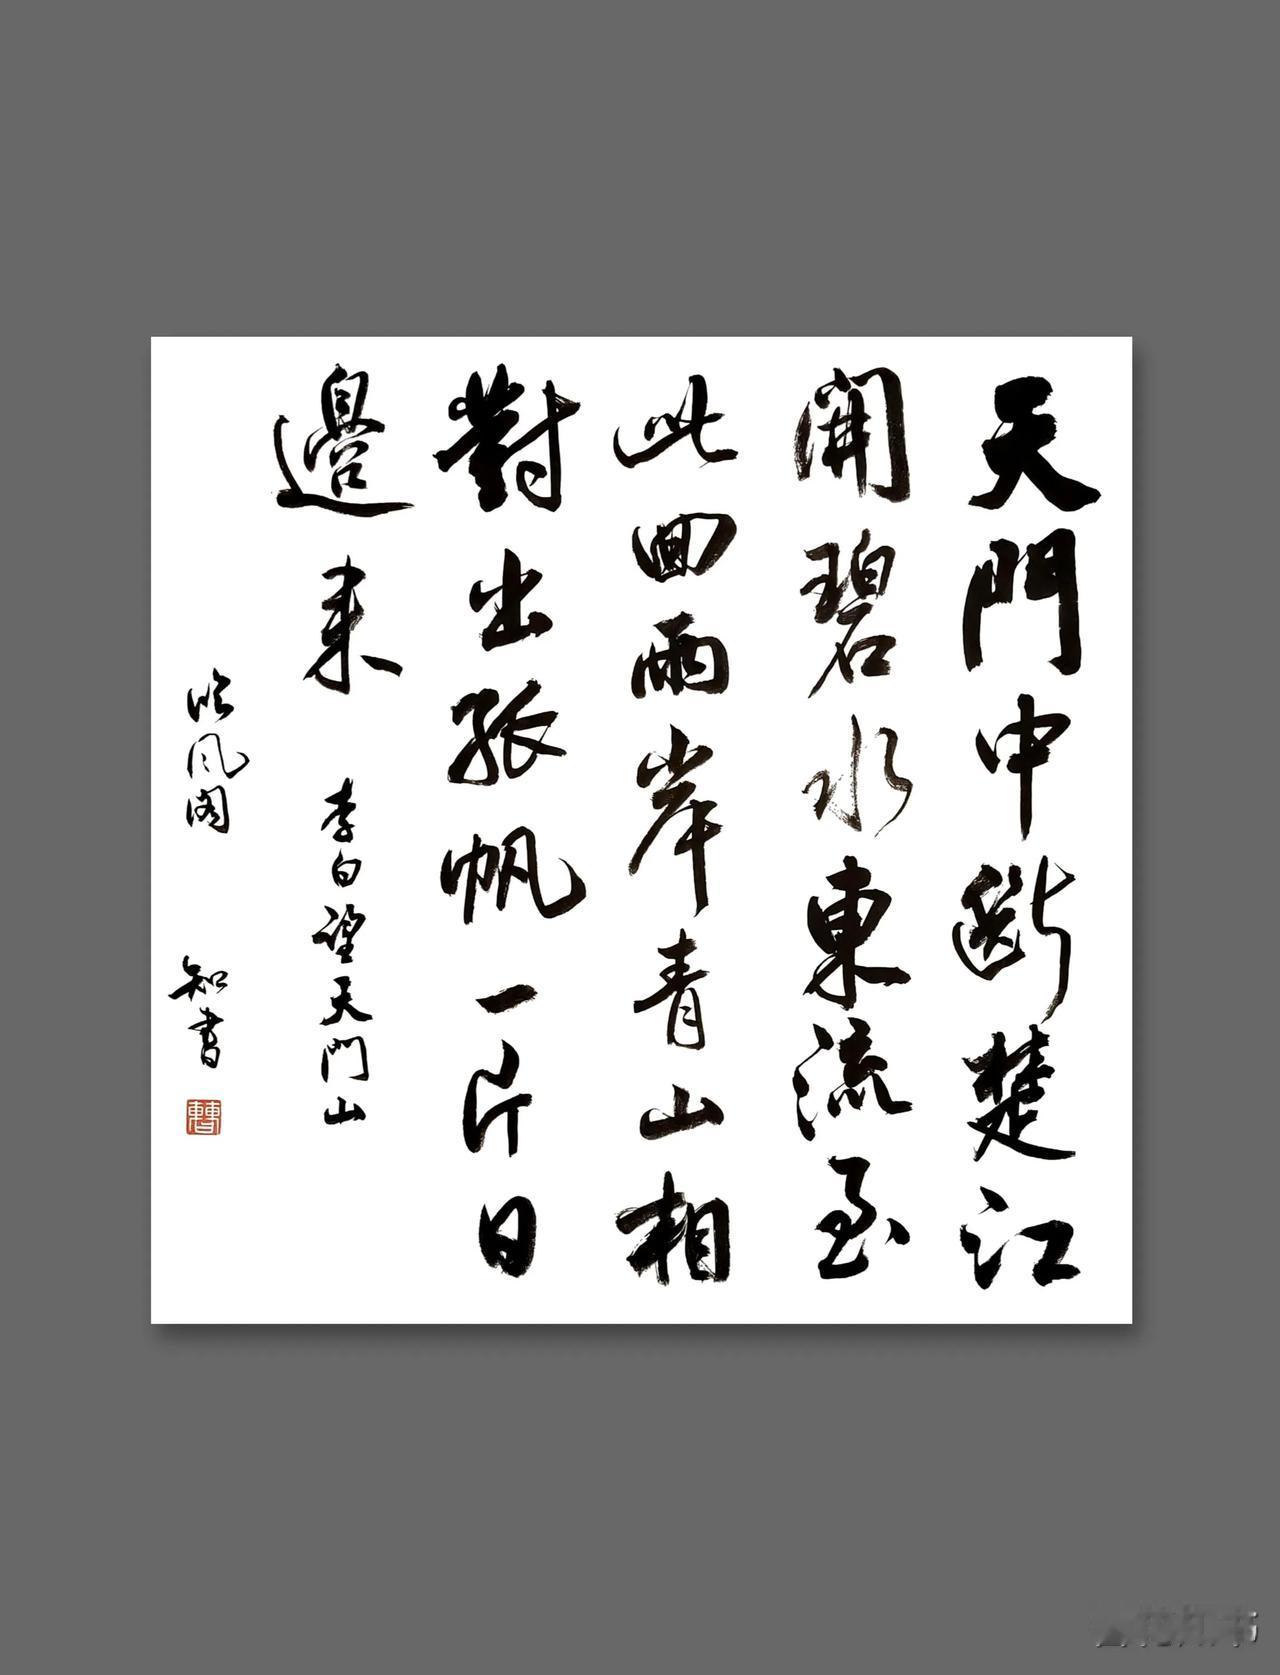 天門中斷楚江
開碧水東流至
此回兩岸青山相
對出孤帆一片日
邊来 李白望天門山
吟风阁 知書